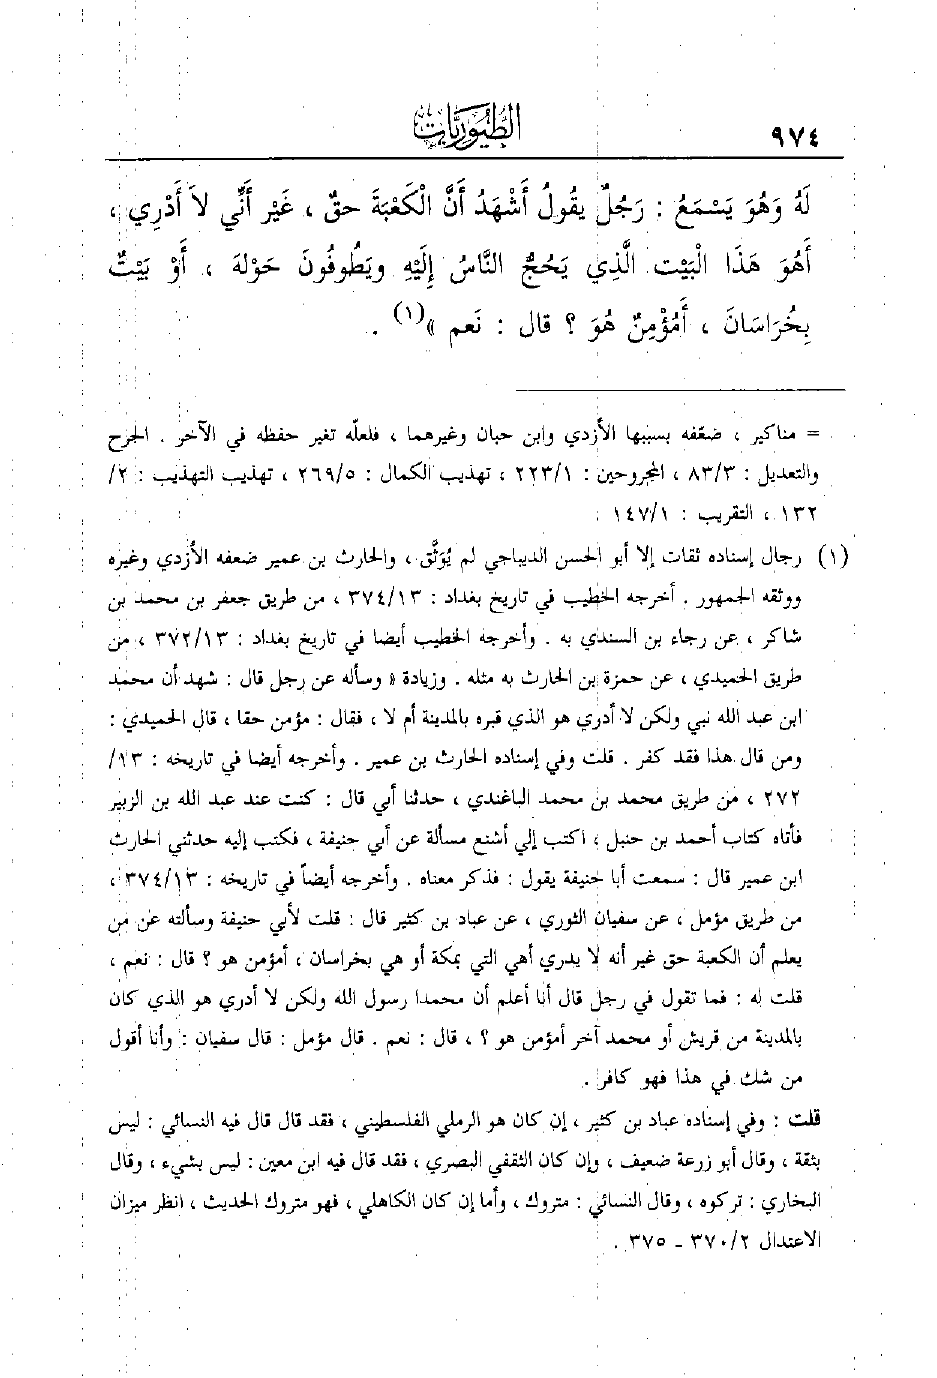 ٩٧٤
الطيوريات
لَهُ وَهُوَ يَسْمَعُ : رَجُلٌ يقُولُ أَشْهَدُ أَنَّ الْكَعْبَةَ حقٌ ، غَيْر أَنِّي لاَ أَدْرِي ،
أَهُوَ هَذَا الْبَيْت الَّذِي يَحُجُّ النَّاسُ إِلَيْهِ ويَطُوفُونَ حَوْلهَ ، أَوْ بَيْتٌ
بِخُرَاسَانَ ، أَمُؤْمِنٌ هُوَ ؟ قال : نَعم »(١) .
= مناكير ، ضعّفه بسببها الأزدي وابن حبان وغيرهما ، فلعلّه تغير حفظه في الآخر . الجرح
والتعديل : ٨٣/٣ ، المجروحين : ٢٢٣/١ ، تهذيب الكمال : ٢٦٩/٥ ، تهذيب التهذيب : ٢/
١٣٢ ، التقريب : ١٤٧/١ .
(١) رجال إسناده ثقات إلا أبو الحسن الديباجي لم يُوَثَّق ، والحارث بن عمير ضعفه الأزدي وغيره
ووثقه الجمهور . أخرجه الخطيب في تاريخ بغداد : ٣٧٤/١٣ ، من طريق جعفر بن محمد بن
شاكر ، عن رجاء بن السندي به . وأخرجه الخطيب أيضا في تاريخ بغداد : ٣٧٢/١٣ ، من
طريق الحميدي ، عن حمزة بن الحارث به مثله . وزيادة « وسأله عن رجل قال : شهد أن محمد
ابن عبد الله نبي ولكن لا أدري هو الذي قبره بالمدينة أم لا ، فقال : مؤمن حقا ، قال الحميدي :
ومن قال هذا فقد كفر . قلت وفي إسناده الحارث بن عمير . وأخرجه أيضا في تاريخه : ١٣/
٢٧٢ ، من طريق محمد بن محمد الباغندي ، حدثنا أبي قال : كنت عند عبد الله بن الزبير
فأتاه كتاب أحمد بن حنبل ، اكتب إلي أشنع مسألة عن أبي حنيفة ، فكتب إليه حدثني الحارث
ابن عمير قال : سمعت أبا حنيفة يقول : فذكر معناه . وأخرجه أيضاً في تاريخه : ٣٧٤/١٣ ،
من طريق مؤمل ، عن سفيان الثوري ، عن عباد بن كثير قال : قلت لأبي حنيفة وسألته عن من
يعلم أن الكعبة حق غير أنه لا يدري أهي التي بمكة أو هي بخراسان ، أمؤمن هو ؟ قال : نعم ،
قلت له : فما تقول في رجل قال أنا أعلم أن محمدا رسول الله ولكن لا أدري هو الذي كان
بالمدينة من قريش أو محمد آخر أمؤمن هو ؟ ، قال : نعم . قال مؤمل : قال سفيان : وأنا أقول
من شك في هذا فهو كافر .
قلت : وفي إسناده عباد بن كثير ، إن كان هو الرملي الفلسطيني ، فقد قال قال فيه النسائي : ليس
بثقة ، وقال أبو زرعة ضعيف ، وإن كان الثقفي البصري ، فقد قال فيه ابن معين : ليس بشيء ، وقال
البخاري : تركوه ، وقال النسائي : متروك ، وأما إن كان الكاهلي ، فهو متروك الحديث ، انظر ميزان
الاعتدال ٣٧٠/٢ ـ ٣٧٥ .